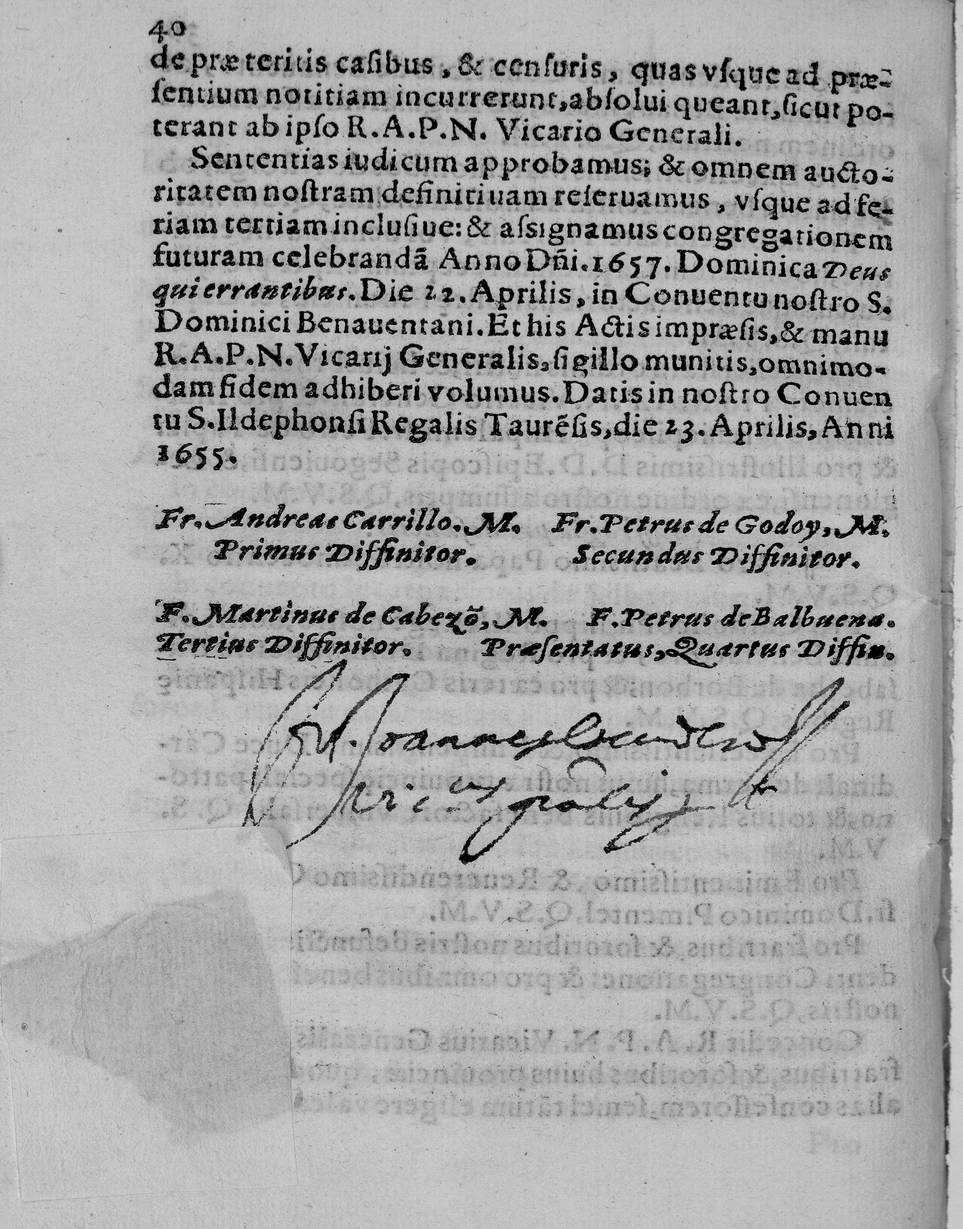 40
de præteritis casibus, & censuris, quas vsque ad præ-
sentium notitiam incurrerunt, absolui queant, sicut po-
terant ab ipso R.A.P.N. Vicario Generali.
Sententias iudicum approbamus; & omnem aucto-
ritatem nostram definitiuam reseruamus, vsque ad fe-
riam tertiam inclusiue: & assignamus congregationem
futuram celebrandā Anno Dn̄i. 1657. Dominica Deus
qui errantibus. Die 22. Aprilis, in Conuentu nostro S.
Dominici Benauentani. Et his Actis impræsis, & manu
R.A.P.N. Vicarij Generalis, sigillo munitis, omnimo-
dam fidem adhiberi volumus. Datis in nostro Conuen
tu S. Ildephonsi Regalis Taurēsis, die 23. Aprilis, Anni
1655.
Fr. Andreas Carrillo. M. Fr. Petrus de Godoy, M.
Primus Diffinitor. Secundus Diffinitor.
F. Martinus de Cabezō, M. F. Petrus de Balbuena.
Tertius Diffinitor. Præsentatus, Quartus Diffin.
Joannes